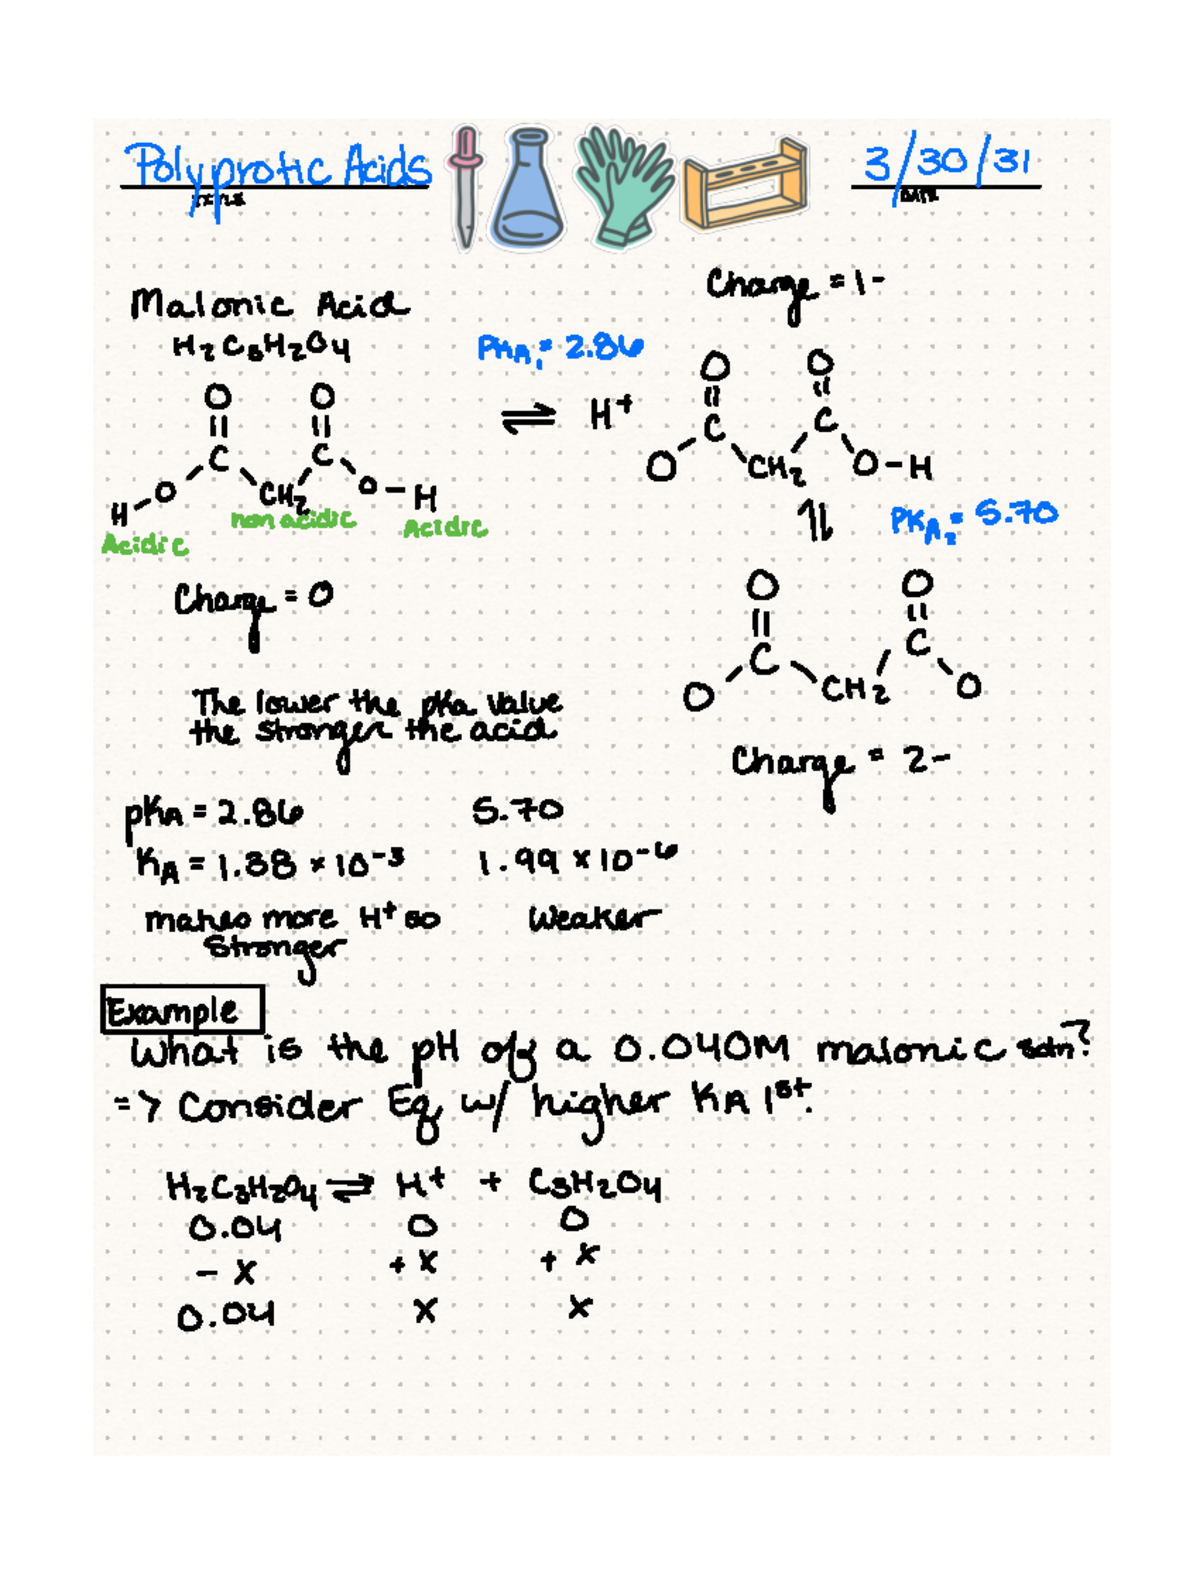 Polyprotic Acids
3/30/31
DATE
Malonic Acid
H2C3H2O4
Charge = 1-
pKA1 = 2.86
O O
|| ||
C C
H-O CH2 O-H
Acidic non acidic Acidic
⇌ H+
O O
|| ||
C C
O CH2 O-H
⇌ pKA2 = 5.70
Charge = 0
O O
|| ||
C C
O CH2 O
Charge = 2-
The lower the pKa value
the stronger the acid
pKA = 2.86 5.70
KA = 1.38 × 10-3 1.99 × 10-6
makes more H+ so Weaker
Stronger
Example
What is the pH of a 0.040M malonic soln?
=> Consider Eq w/ higher KA 1st.
H2C3H2O4 ⇌ H+ + C3H2O4
0.04 0 0
- x + x + x
0.04 x x